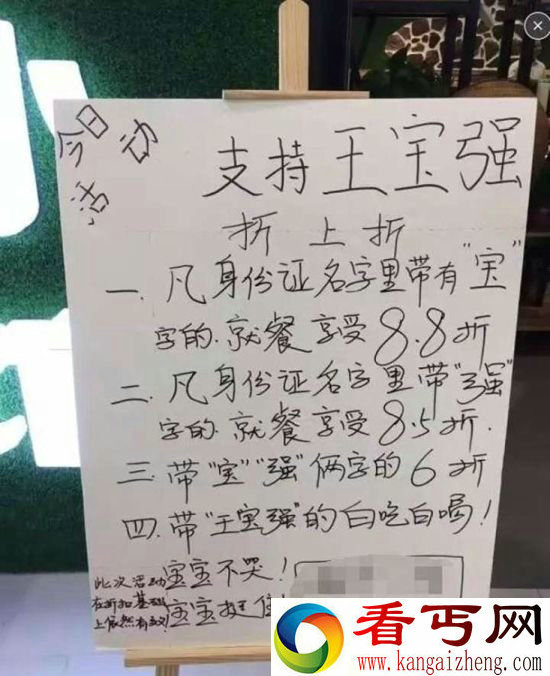 今日
活动
支持王宝强
折上折
一.凡身份证名字里带有"宝"
字的.就餐享受8.8折
二.凡身份证名字里带"强"
字的.就餐享受8.5折.
三.带"宝""强"俩字的6折
四.带"王宝强"的白吃白喝!
宝宝不哭!
宝宝挺住
此次活动
在折扣基础
上依然有效!
看丐网
www.kangaizheng.com